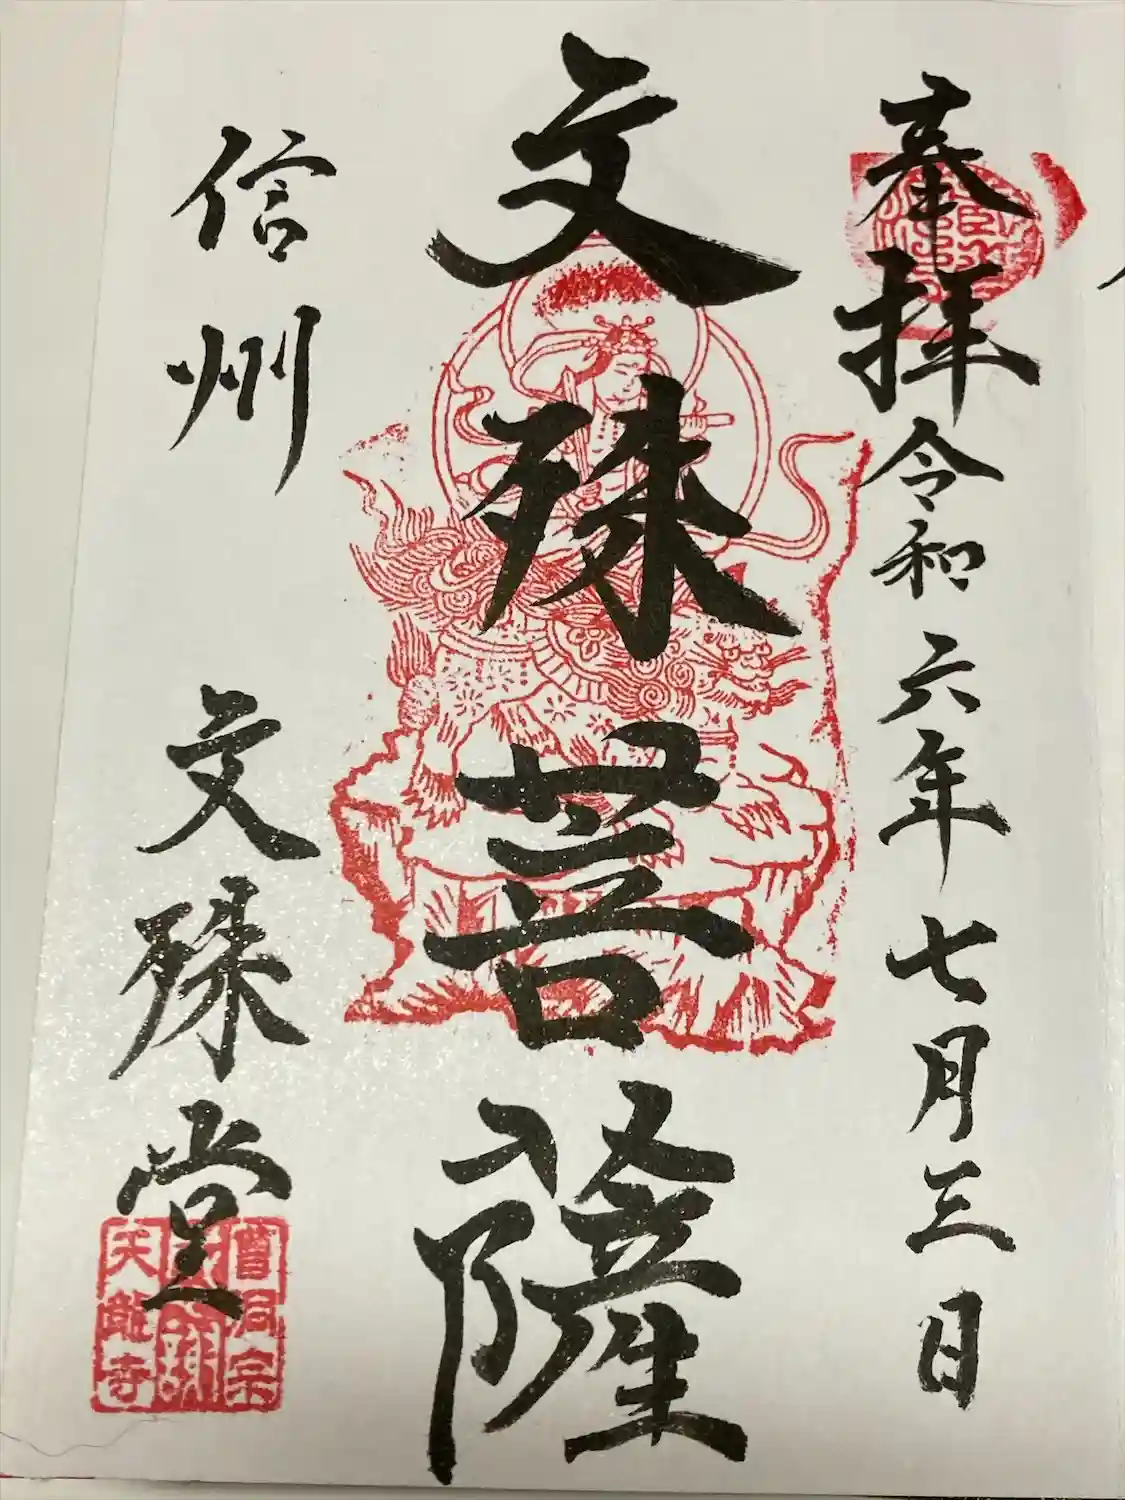 奉拝 令和六年七月三日
文殊菩薩
信州 文殊堂
曹洞宗
天龍寺